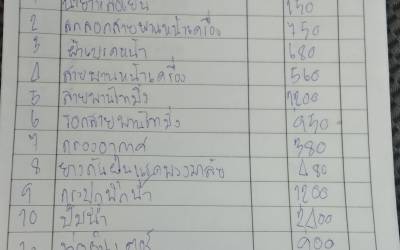 1 น้ำยาหล่อเย็น 150
2 ลูกลอกสายพานหน้าเครื่อง 750
3 ผ้าเบรคหน้า 680
4 สายพานหน้าเครื่อง 560
5 สายพานไทมิ่ง 1200
6 รอกสายพานไทมิ่ง 950
7 กรองอากาศ 380
8 ยางกันฝุ่น พวงมาลัย 480
9 กระปุกพักน้ำ 1200
10 ปั๊มน้ำ 2400
900